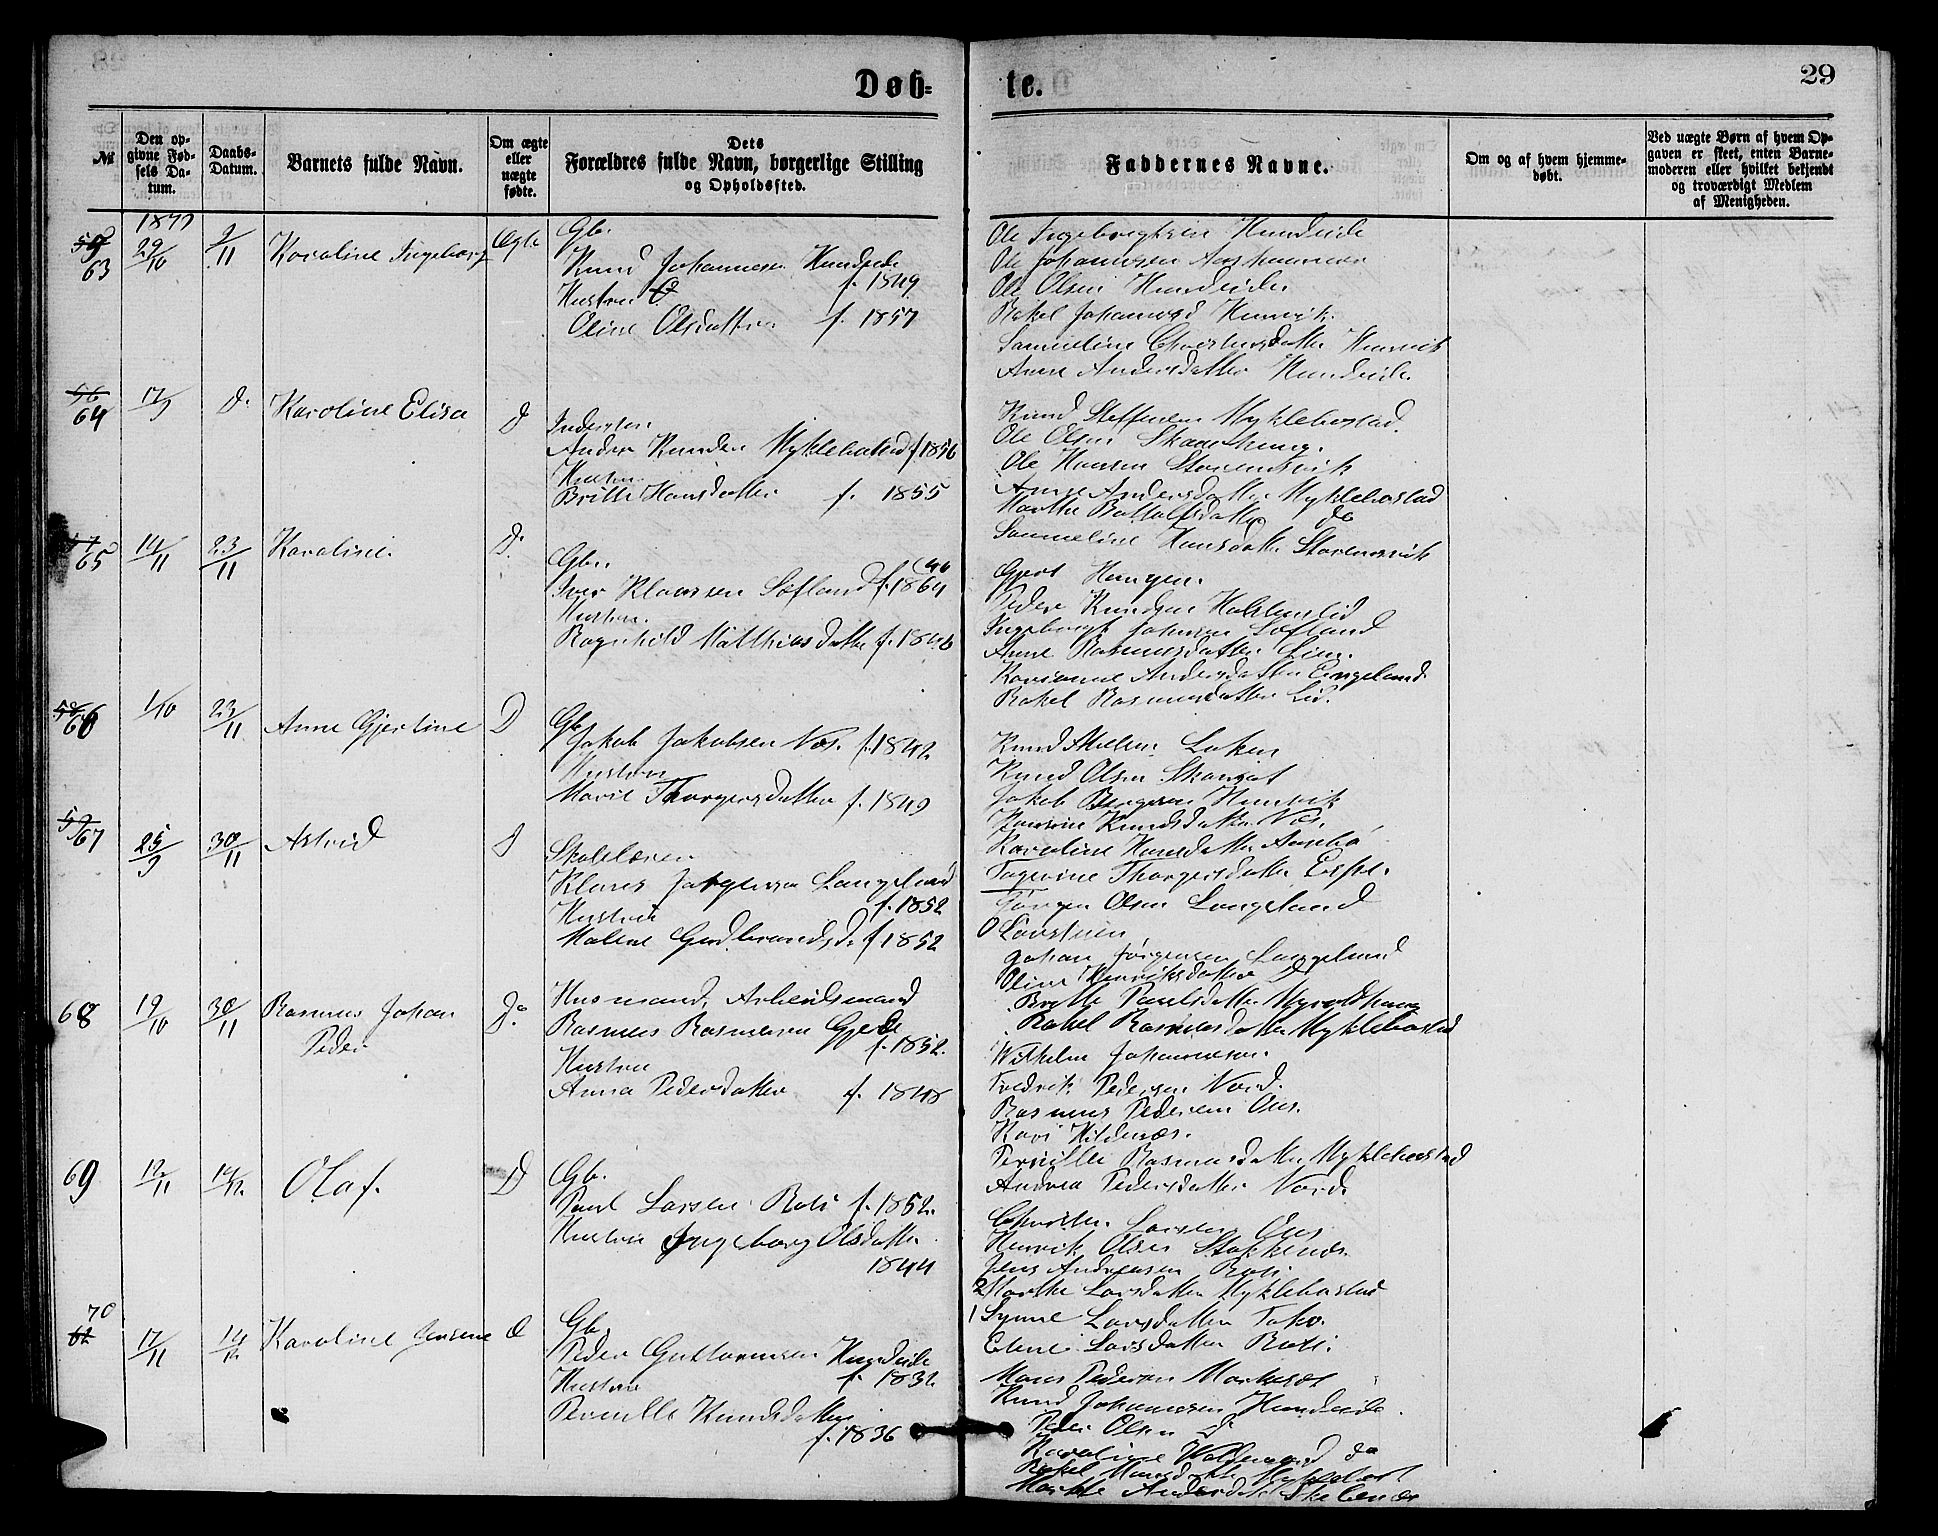 Døb-
te.
29
№
Den op-
givne Fød-
sels Da-
tum.
Daabs-
Datum.
Barnets fulde Navn.
Om ægte
eller
uægte
fødte.
Dets
Forældres fulde Navn, borgerlige Stilling
og Opholdssted.
Faddernes Navne.
Om og af hvem hjemme-
døbt.
Ved uægte Børn af hvem Op-
gaven er skeet, enten Barne-
moderen eller hvilket bekjendt
og troværdigt Medlem
af Menigheden.
1877
63
29/10
2/11
Karoline Ingeborg
Ægte
Gb.
Knud Johannesen Hundeide
f. 1849
Hustru
Oline Olsdatter f. 1857
Ole Ingebrigtsen Hundeide
Ole Johannesen
Ole Olsen Hundeide
Rakel Johannesd Hennvik.
Samueline Christensdatter Hennvik
Anne Andersdatter Hundeide.
56
64
17/9
d.
Karoline Elisa
d
Inderster
Anders Knudsen Myklebostad f. 1856
Hustru
Brithe Hansdatter f. 1855
Knud Steffensen Myklebostad.
Ole Olsen
Ole Hansen Starensvik
Anne Andersdatter Myklebostad
Marthe Bottolfsdatter do
Sameline Hansdatter Starensvik
57
65
14/11
23/11
Karoline.
D.
Gbr.
Iver Klaussen Lofland f. 1864
46
Hustru.
Ragnhild Matthiasdatter f. 1846
Gjert Haugen.
Peder Knudsen
Ingebrigt Johnsen Lofland
Anne Rasmusdatter Lien.
Karianne Andersdatter Engeland
Rakel Rasmusdatter Lid.
58
66
1/10
23/11
Anne Gjertine
D
Gb.
Jakob Jakobsen Nos. f. 1842
Hustru
Marie Thorgersdatter f. 1849
Knud
Knud Olsen
Jakob Hennvik
Knudsdatter Nos.
Karoline Hansdatter
Thorgersdatter
59
67
25/9
30/11
Astrid
D
Skolelærer
Klaus Jørgensen Langeland
f. 1852
Hustru
Malene Gudbrandsd. f 1852
Jørgen Olsen Langeland
Johan Jørgensen Langeland
Oline Henriksdatter D
Brithe Paulsdatter Myroldhaug
Rakel Rasmusdatter Myklebostad
68
19/10
30/11
Rasmus Johan
Peder
Do
Husmand, Arbeidsmand
Rasmus Rasmusen Gjerde
f. 1852.
Hustru
Anna Pedersdatter f. 1848
Wilhelm Johannessen.
Fredrik Pedersen Nord.
Rasmus Pedersen Aus.
Kari Hildenæs.
Pernille Rasmusdatter Myklebostad
Andrea Pedersdatter Nord.
69
12/11
14/12.
Olaf.
D
Gb.
Paul Larsen Roti f. 1852.
Hustru Ingeborg Olsdatter
1844
Christen Larsen Aus
Henrik Olsen Stokkenæs
Jens Andreasen Roti
2 Marthe Larsdatter Myklebostad
1 Synne Larsdatter
Eline Larsdatter Roti.
70
62
17/11
14/12
Karoline Jensine
d
Gb.
Peder Guttormsen Hundeide
f. 1832
Hustru
Pernille Knudsdatter
f. 1836
Mons Pedersen
Knud Johannesen Hundeide
Peder Olsen d
Karoline do
Rakel
Marthe Andersdatter